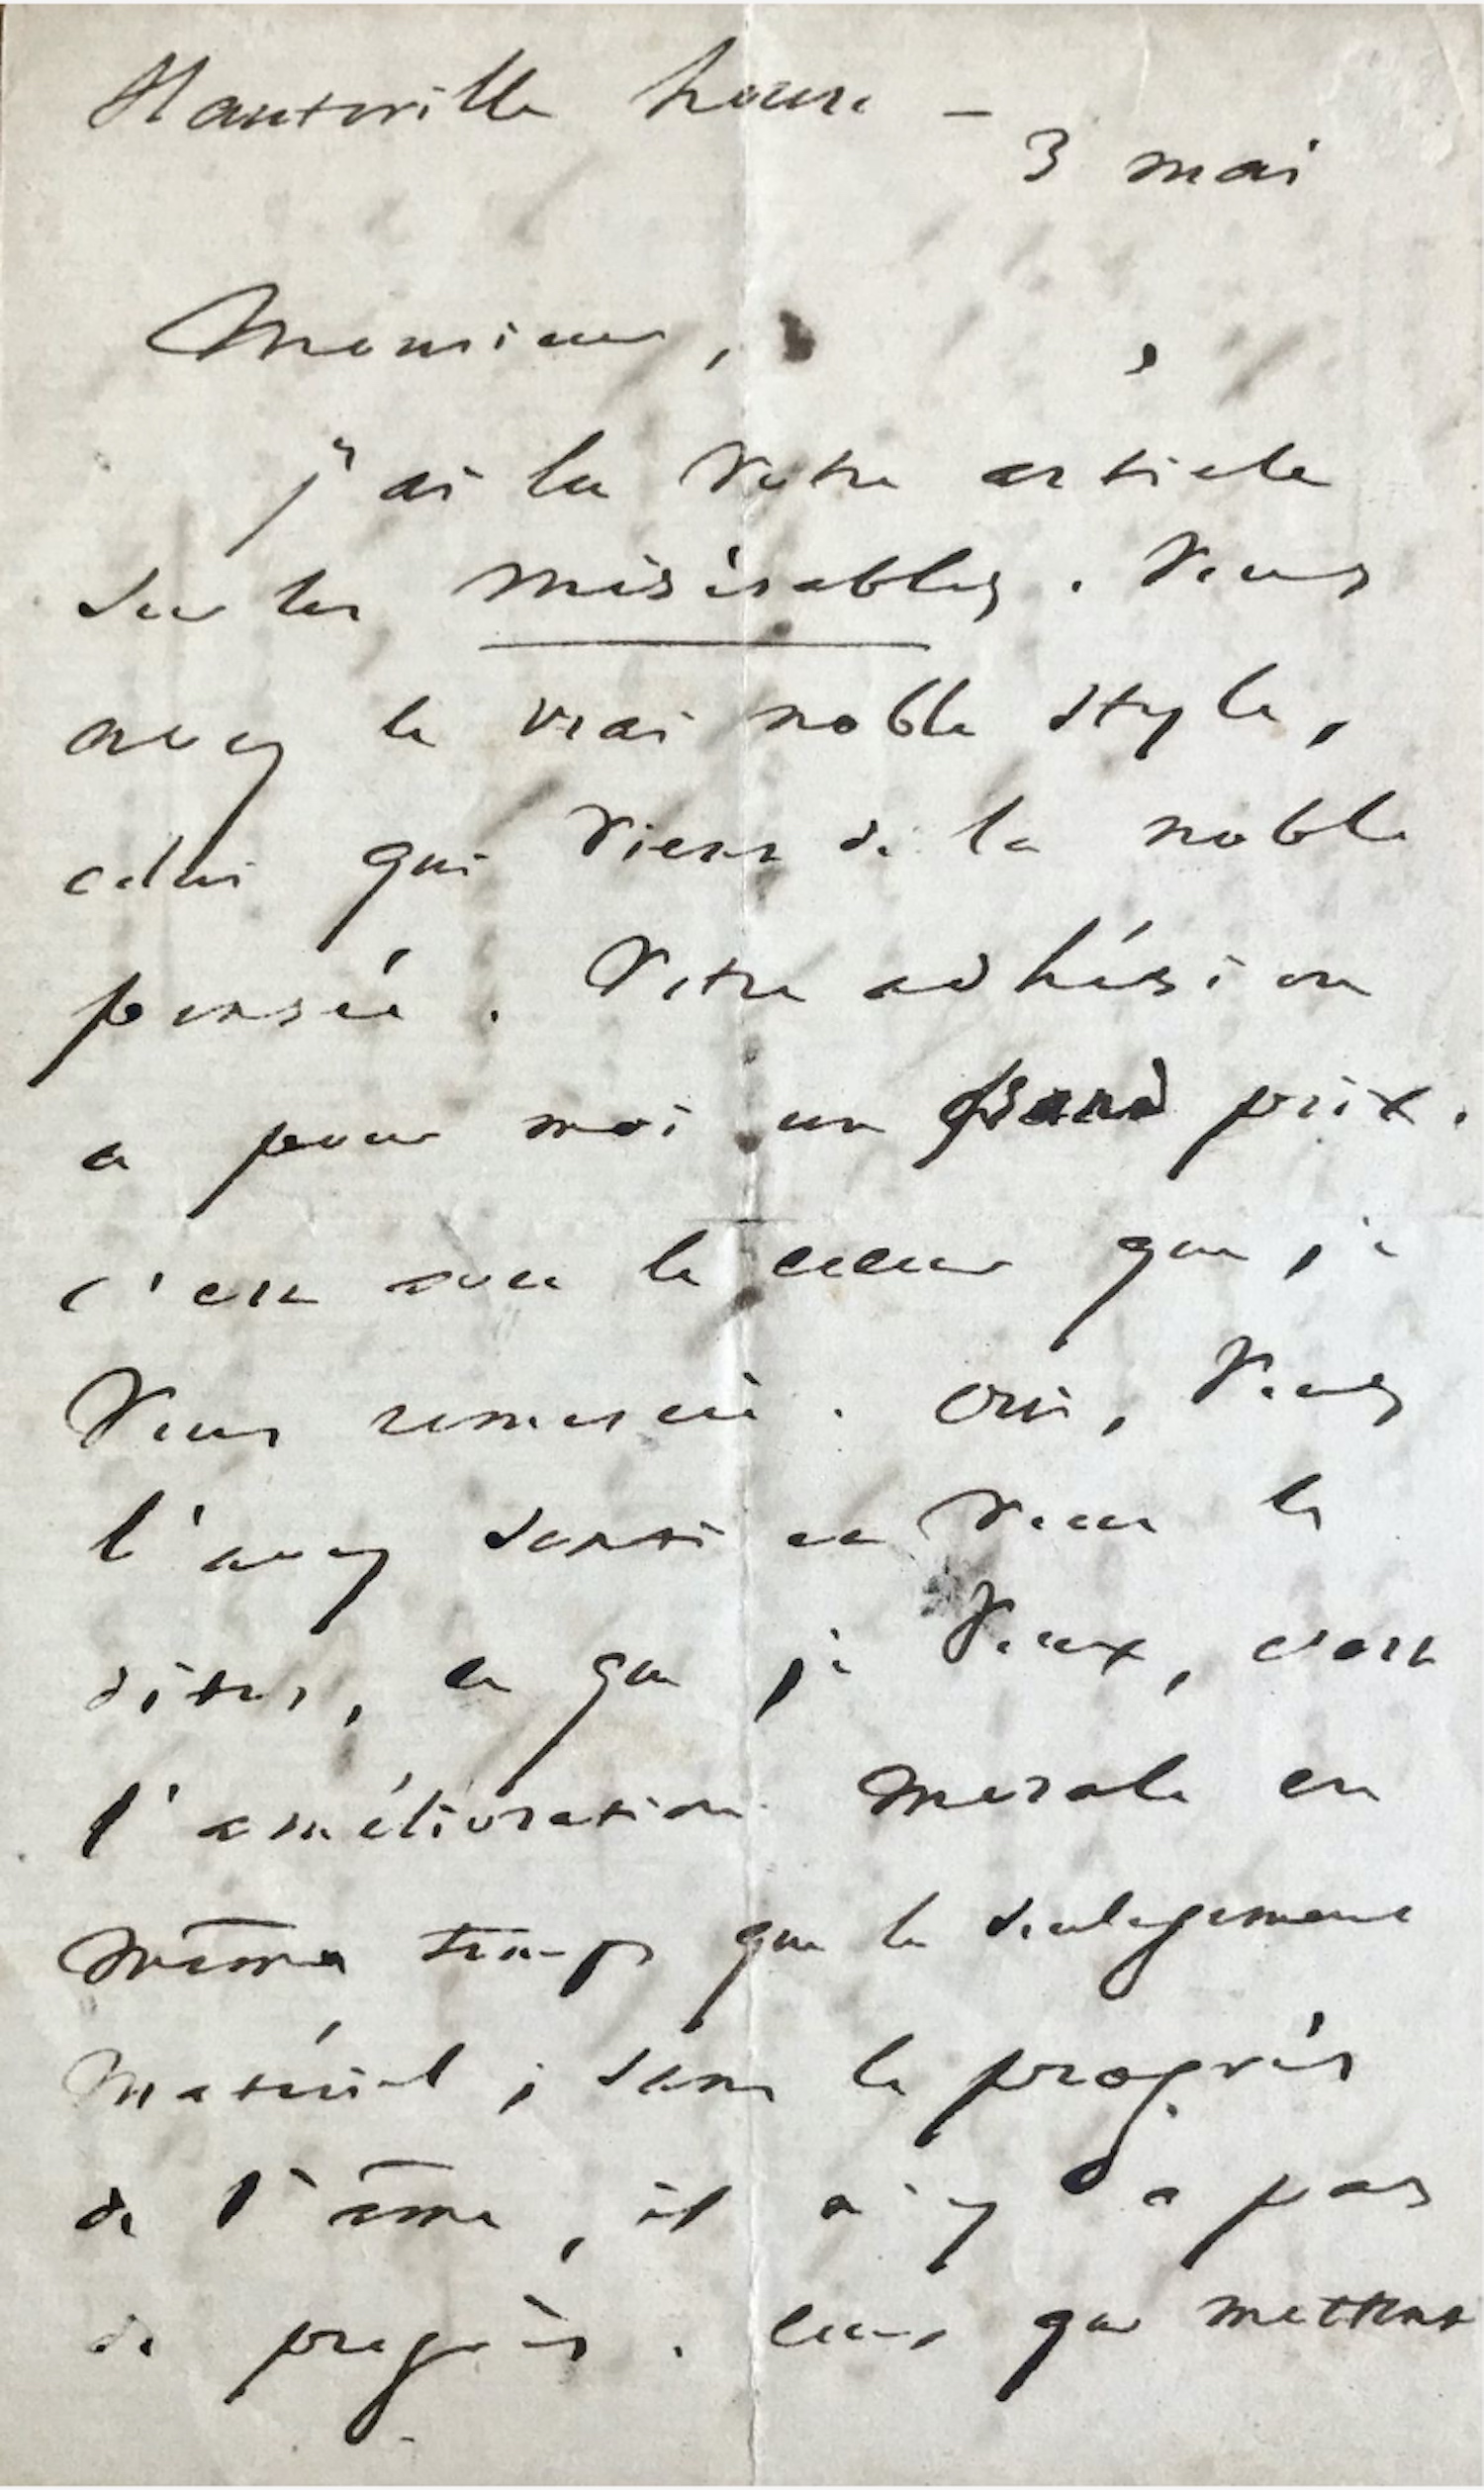 Hauteville house –
3 mai
Monsieur,
j'ai lu votre article
sur les Misérables. Vous
avez le vrai noble style,
celui qui vient de la noble
pensée. Votre adhésion
a pour moi un grand prix.
c'est avec le cœur que je
vous remercie. Oui, vous
l'avez senti et vous le
dites, ce que je veux, c'est
l'amélioration morale en
même temps que le soulagement
matériel ; sans le progrès
de l'âme, il n'y a pas
de progrès. Ceux qui mettent